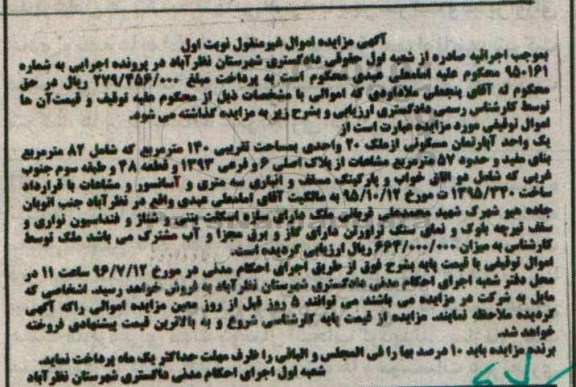 آگهی مزایده اموال غیرمنقول نوبت اول
بموجب اجرائیه صادره از شعبه اول حقوقی دادگستری شهرستان نظرآباد در پرونده اجرایی به شماره
۹۵۰۱۶۱ محکوم علیه امامعلی عبدی محکوم است به پرداخت مبلغ ۲۷۹/۴۵۶/۰۰۰ ریال در حق
محکوم له آقای پنجعلی ملاداودی که اموالی با مشخصات ذیل از محکوم علیه توقیف و قیمت آن ها
توسط کارشناس رسمی دادگستری ارزیابی و بشرح زیر به مزایده گذاشته می شود.
اموال توقیفی مورد مزایده عبارت است از
یک واحد آپارتمان مسکونی ازملک ۲۰ واحدی بمساحت تقریبی ۱۴۰ مترمربع که شامل ۸۲ مترمربع
بنای مفید و حدود ۵۷ مترمربع مشاعات از پلاک اصلی ۶ و فرعی ۱۳۹۳ و قطعه ۳۸ و طبقه سوم جنوب
غربی که شامل دو اتاق خواب و پارکینگ مسقف و انباری سه متری و آسانسور و مشاعات با قرارداد
ساخت ۱۳۹۵/۳۳۰ ت مورخ ۹۵/۱۰/۱۲ به مالکیت آقای امامعلی عبدی واقع در نظرآباد جنب اتوبان
جاده هیو شهرک شهید محمدعلی قربانی ملک دارای سازه اسکلت بتنی و شناژ و فنداسیون نواری و
سقف تیرچه بلوک و نمای سنگ تراورتن دارای گاز و برق مجزا و آب مشترک می باشد ملک توسط
کارشناس به میزان ۶۶۴/۰۰۰/۰۰۰ ریال ارزیابی گردیده است.
اموال توقیفی با قیمت پایه بشرح فوق از طریق اجرای احکام مدنی در مورخ ۹۶/۷/۱۲ ساعت ۱۱ در
محل دفتر شعبه اجرای احکام مدنی دادگستری شهرستان نظرآباد به فروش خواهد رسید. اشخاصی که
مایل به شرکت در مزایده می باشند می توانند ۵ روز قبل از روز معین مزایده اموالی راکه آگهی
گردیده ملاحظه نمایند. مزایده از قیمت پایه کارشناسی شروع و به بالاترین قیمت پیشنهادی فروخته
خواهد شد.
برنده مزایده باید ۱۰ درصد بها را فی المجلس و الباقی را ظرف مهلت حداکثر یک ماه پرداخت نماید.
شعبه اول اجرای احکام مدنی دادگستری شهرستان نظرآباد